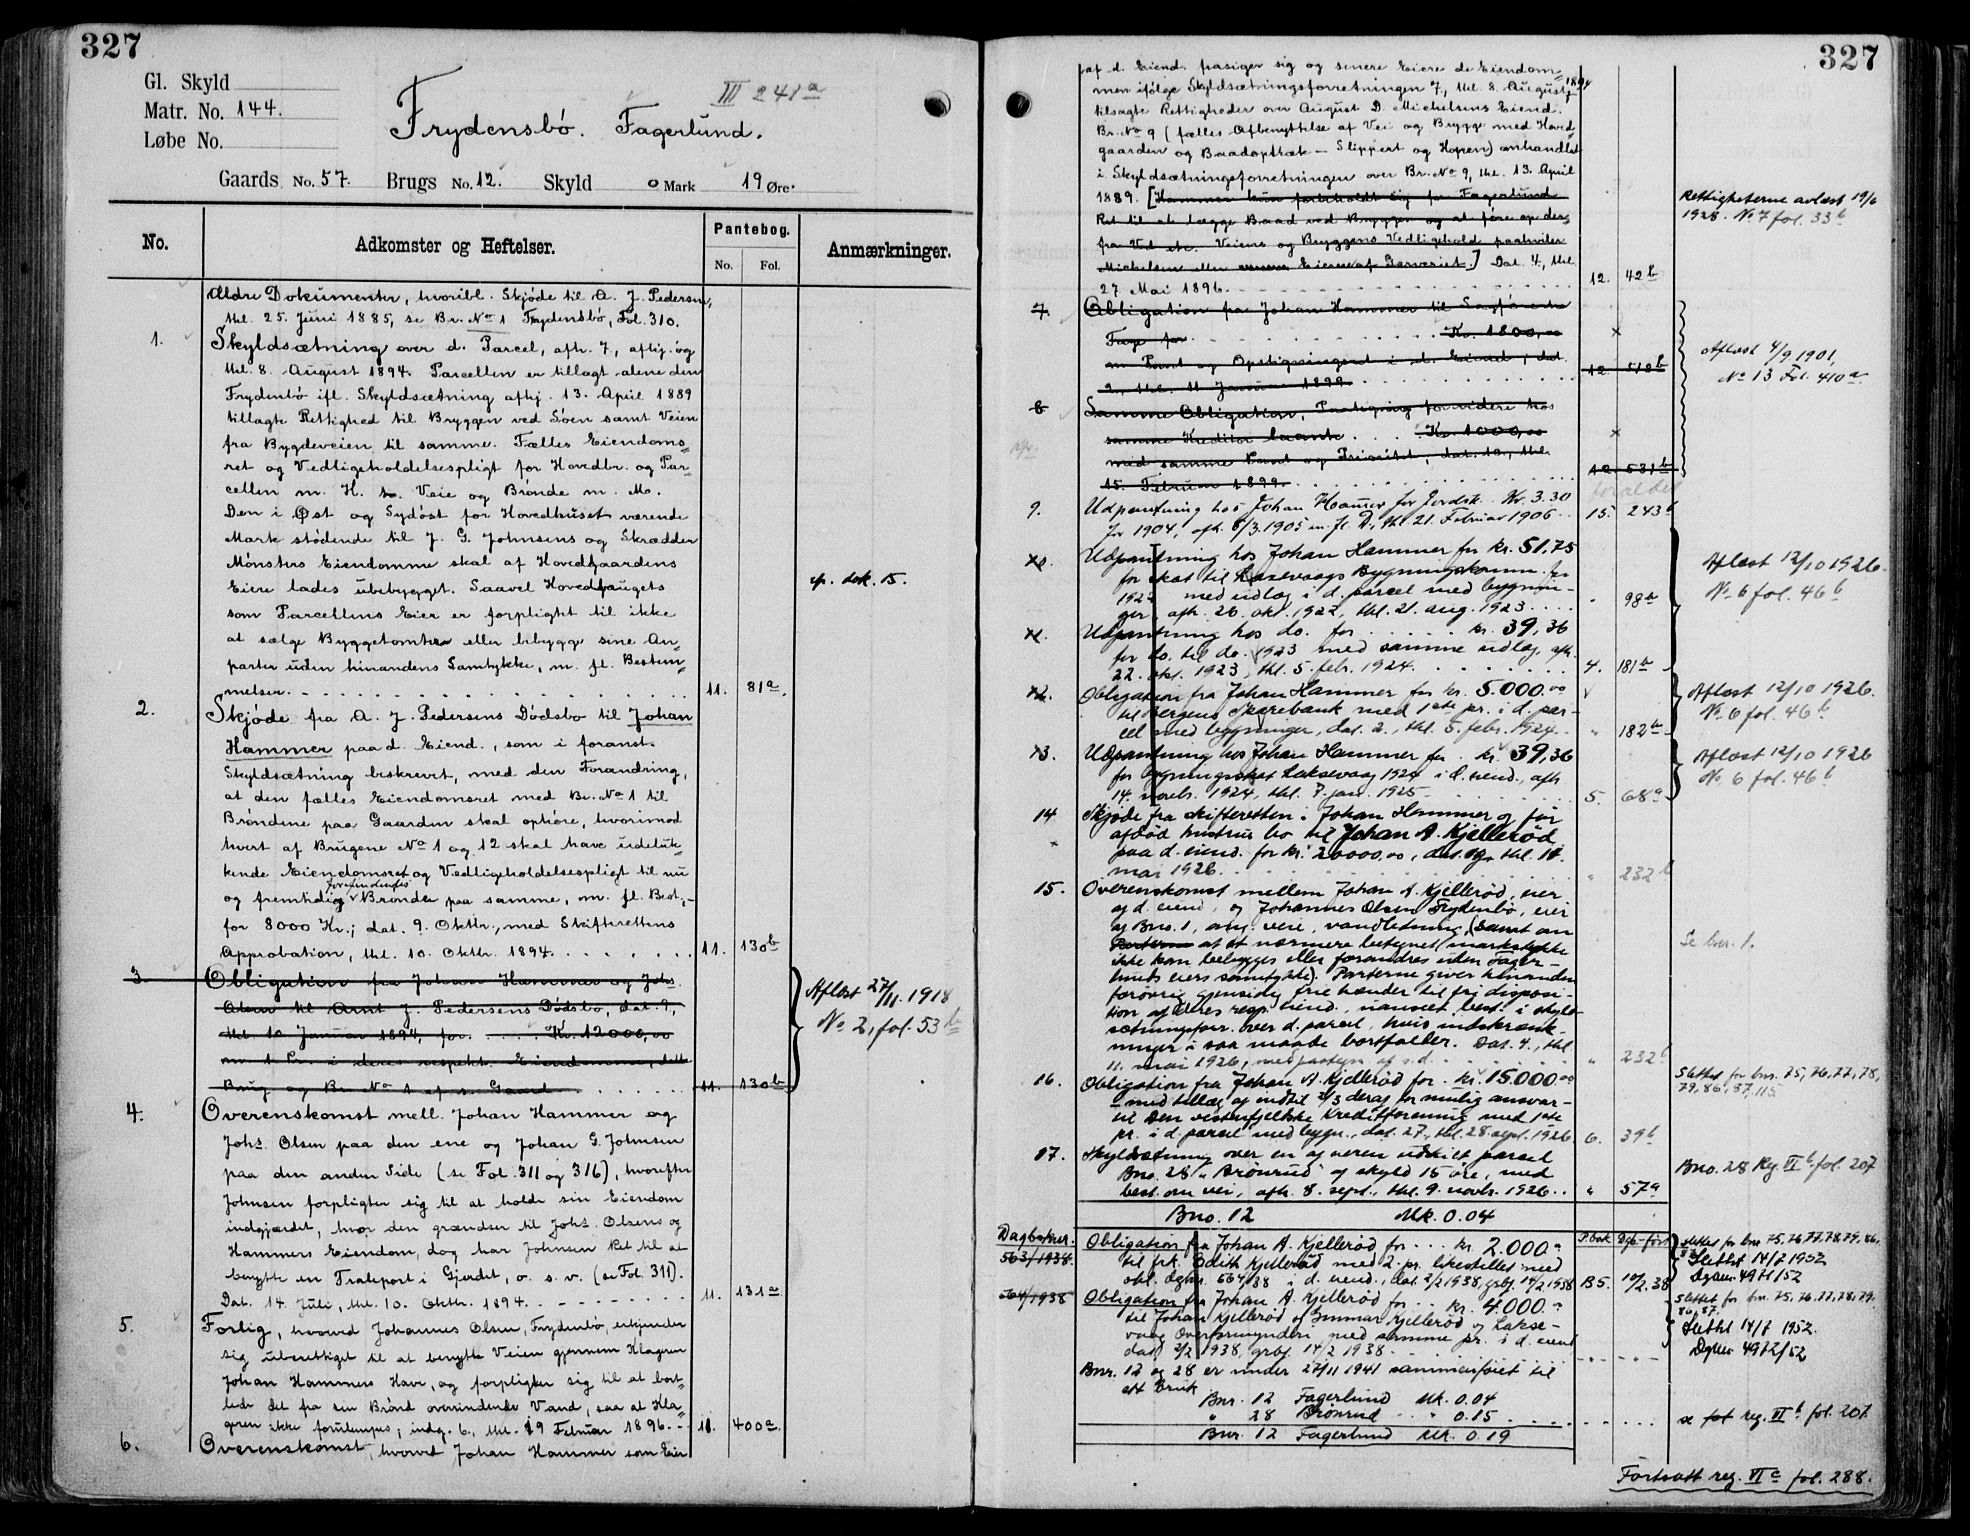 327
Gl. Skyld
Matr. No. 144.
Løbe No.
III 241a
Frydensbø. Fagerlund.
Gaards No. 57. Brugs No. 12. Skyld 0 Mark 19 Øre.
No.
Adkomster og Heftelser.
Pantebog.
No. Fol.
Anmærkninger.
Ældre Dokumenter, hvoribl. Skjøde til A. J. Pedersen,
thl. 25. Juni 1885, se Br. No 1 Frydensbø, Fol. 310.
1. Skyldsætning over d. Parcel, afh. 7, afhj. og
thl. 8. August 1894. Parcellen er tillagt alene den
Frydenbø ifl. Skyldsætning afhj. 13. April 1889
tillagte Rettighed til Bryggen ved Søen samt Veien
fra Bygdeveien til samme. Fælles Eiendoms-
ret og Vedligeholdelsespligt for Hovedbr. og Par-
cellen m. H. t. Veie og Brønde m. M.
Den i Øst og Sydøst for Hovedhuset værende
Mark stødende til J. G. Johnsens og Skrædder
Mønsters Eiendomme skal af Hovedgaardens
Eiere lades ubebygget. Saavel Hovedbrugets
som Parcellens Eier er forpligtet til ikke
at sælge Byggetomter eller bebygge sine An-
parter uden hinandens Samtykke, m. fl. Bestem-
melser. 11. 81a.
cfr. dok. 15.
2. Skjøde fra A. J. Pedersens Dødsbo til Johan
Hammer paa d. Eiend., som i foranst.
Skyldsætning beskrevet, med den Forandring,
at den fælles Eiendomsret med Br. No 1 til
Brøndene paa Gaarden skal ophøre, hvorimod
hvert af Brugene No 1 og 12 skal have udeluk-
kende Eiendomsret og Vedligeholdelsespligt til nu
forefindendes
og fremtidig Brønder paa samme, m. fl. Best.,
for 8000 Kr.; dat. 9. Oktbr., med Skifterettens
Approbation, thl. 10. Oktbr. 1894. 11. 130b
3. Obligation fra Johan Hammer og Johs.
Olsen til Arnt J. Pedersens Dødsbo, dat. 9.,
thl. 10 Januar 1894, for Kr. 12000,00
m. 1 Pr. i deres respekt. Eiendomme, dette
Brug og Br. No 1 af s. Gaard 11. 130b
Aflæst 27/11. 1918
No 2, fol. 53b
4. Overenskomst mell. Johan Hammer og
Johs. Olsen paa den ene og Johan G. Johnsen
paa den anden Side (se Fol. 311 og 316), hvorefter
Johnsen forpligter sig til at holde sin Eiendom
indgjærdet, hvor den grændser til Johs. Olsens og
Hammers Eiendom, dog har Johnsen Ret til at
benytte en Træport i Gjerdet, o. s. v. (se Fol. 311).
Dat. 14. Juli, thl. 10. Oktbr. 1894. 11. 131a
5. Forlig, hvorved Johannes Olsen, Frydenbø, erkjender
sig uberettiget til at benytte Veien gjennem Klageren
Johan Hammers Have, og forpligter sig til at bort-
lede det fra sin Brønd overrindende Vand, saa at Kla-
geren ikke forulempes; indg. 6., thl. 19 Februar 1896. 11. 400a.
6. Overenskomst, hvorved Johan Hammer som Eier
327
af d. Eiend. frasiger sig og senere Eiere de Eiendom-
men ifølge Skyldsætningsforretningen 7., thl. 8. August 1894
tilsagte Rettigheder over August D. Michelsens Eiend.
Br. No 9 (fælles Afbenyttelse af Vei og Brygge med Hoved-
gaarden og Baadoptræk — Slippert og Hopen) omhandlet
i Skyldsætningsforretningen over Br. No 9, thl. 13. April
1889. [Hammer kun forbeholdt sig for Fagerlund
Ret til at lægge Baad ved Bryggen og at føre op der-
fra Ved etc. Veiens og Bryggens Vedligehold paahviler
Michelsen eller Eierne af Garveriet.] Dat. 4., thl.
27 Mai 1896. 12. 42b
Rettigheterne avlæst 19/6
1928. No 7 fol. 33b
7. Obligation fra Johan Hammer til Sagfører
Fage for Kr. 1800,00
m. Pant og Opsigningsret i d. Eiend, dat.
2., thl. 11 Januar 1899. 12. 518b
8 Samme Obligation, Paategning for videre hos
samme Kreditor laante Kr. 1000,00
med samme Pant og Prioritet, dat. 10., thl.
15. Februar 1899. 12. 531b
Aflæst 4/9. 1901,
No 13 Fol. 410a.
9. Udpantning hos Johan Hammer for Jordsk. Kr. 3.30
for 1904, afh. 6/3. 1905 m. fl. D., thl. 21. Februar 1906. 15. 243b
10. Udpantning hos Johan Hammer for kr. 51,75
for skat til Laksevaags Bygningskomm. for
1922 med udlæg i d. parcel med bygnin-
ger, afh. 26. okt. 1922, thl. 21. aug. 1923. " 98a
Aflæst 12/10 1926.
No 6 fol. 46b
11. Udpantning hos do. for kr. 39,36
for do. til do. 1923 med samme udlæg, afh.
22. okt. 1923, thl. 5. febr. 1924. 4. 181a
12. Obligation fra Johan Hammer for kr. 5.000.00
til Bergens Sparebank med 1ste pr. i d. par-
cel med bygninger, dat. 2., thl. 5. febr. 1924. " 182a
Aflæst 12/10 1926.
No 6 fol. 46b
13. Udpantning hos Johan Hammer for kr. 39,36
for bygningsskat Laksevaag 1924 i d. eiend., afh.
14. novbr. 1924, thl. 7. jan. 1925. 5. 68a
Aflæst 12/10 1926
No 6 fol. 46b
14 Skjøde fra skifteretten i Johan Hammer og før
afdød hustrus bo til Johan A. Kjellerød
paa d. eiend. for kr. 20000.00, dat. 10., thl. 11.
mai 1926. " 232b
15. Overenskomst mellem Johan A. Kjellerød, eier
af d. eiend., og Johannes Olsen Frydenbø, eier
af Bno. 1, ang. veie, vandledning, (samt om
Parterne at et nærmere betegnet markstykke
ikke kan bebygges eller forandres uden Fager-
lunds eiers samtykke). Parterne giver hinanden
forøvrig gjensidig frie hænder til fri disposi-
tion af deres resp. eiend., uanseet best. i skyld-
sætningsforr. over d. parcel, hvis indskrænk-
ninger i saa maade bortfaller. Dat. 4., thl.
11. mai 1926, med paategn. af s. d. " 232b
Se bnr. 1.
16. Obligation fra Johan A. Kjellerød for kr. 15.000.00
— med tillæg af indtil 2/3 deraf for mulig ansvar—
til Den vestenfjelske Kreditforening med 1ste
pr. i d. parcel med bygn., dat. 27., thl. 28. sept. 1926 6. 39b
Slettet for bnr. 75, 76, 77, 78,
79, 86, 87, 115.
17. Skyldsætning over en af neren udskilt parcel
Bno. 28 „Brönrud" af skyld 15 øre, med
best. om vei, afh. 8. sept., thl. 9. novbr. 1926. " 57a
Bno. 28 Reg. VIb fol. 207
Bno. 12 Mk. 0.04
Dagboknr. P.bok Dgb.-ført
563/1938. Obligation fra Johan A. Kjellerød for kr. 2.000.-
til frk. Edith Kjellerød med 2. pr. likestillet med
obl. dgbnr. 564/38 i d. eiend., dat. 2/2 1938, grbf. 14/2 1938 B5. 14/2.38
slettet for bnr 75, 76, 77, 78, 79, 86,
87
Slettet 14/7 1952
Dgbnr 4971/52
564/1938 Obligation fra Johan A. Kjellerød for kr. 4.000.-
til Johan Kjellerød og Gunnar Kjellerød v/ Lakse-
vaag Overformynderi, med samme pr. i d. eiend
dat. 2/2 1938, grbf. 14/2 1938.
Slettet for bnr. 75, 76, 77, 78, 79,
86, 87.
Slettet 14/7 1952.
Dgbnr 4972/52
Bnr. 12 og 28 er under 27/11 1941 sammenføiet til
ett bruk
Bnr. 12 Fagerlund Mk. 0.04
" 28 Brönrud " 0.15
se fol reg. VIb fol. 207.
Bnr. 12 Fagerlund Mk. 0.19
Fortsatt reg. VIc fol. 288.